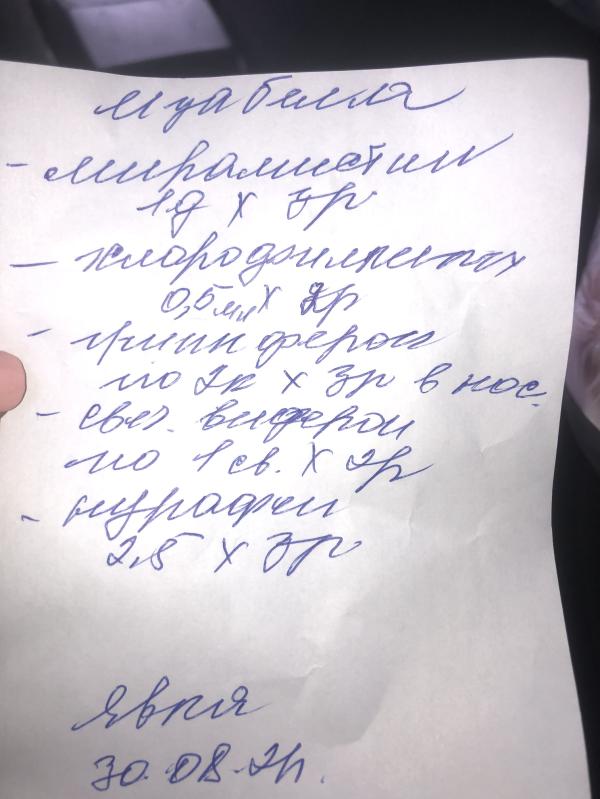 - мирамистин
1д х 3р
0,5мл х 2р
- гриппферон
по 2к х 3р в нос.
- свеч. виферон
по 1 св. х 2р
- нурофен
2,5 х 3р
Явка
30.08.2р.